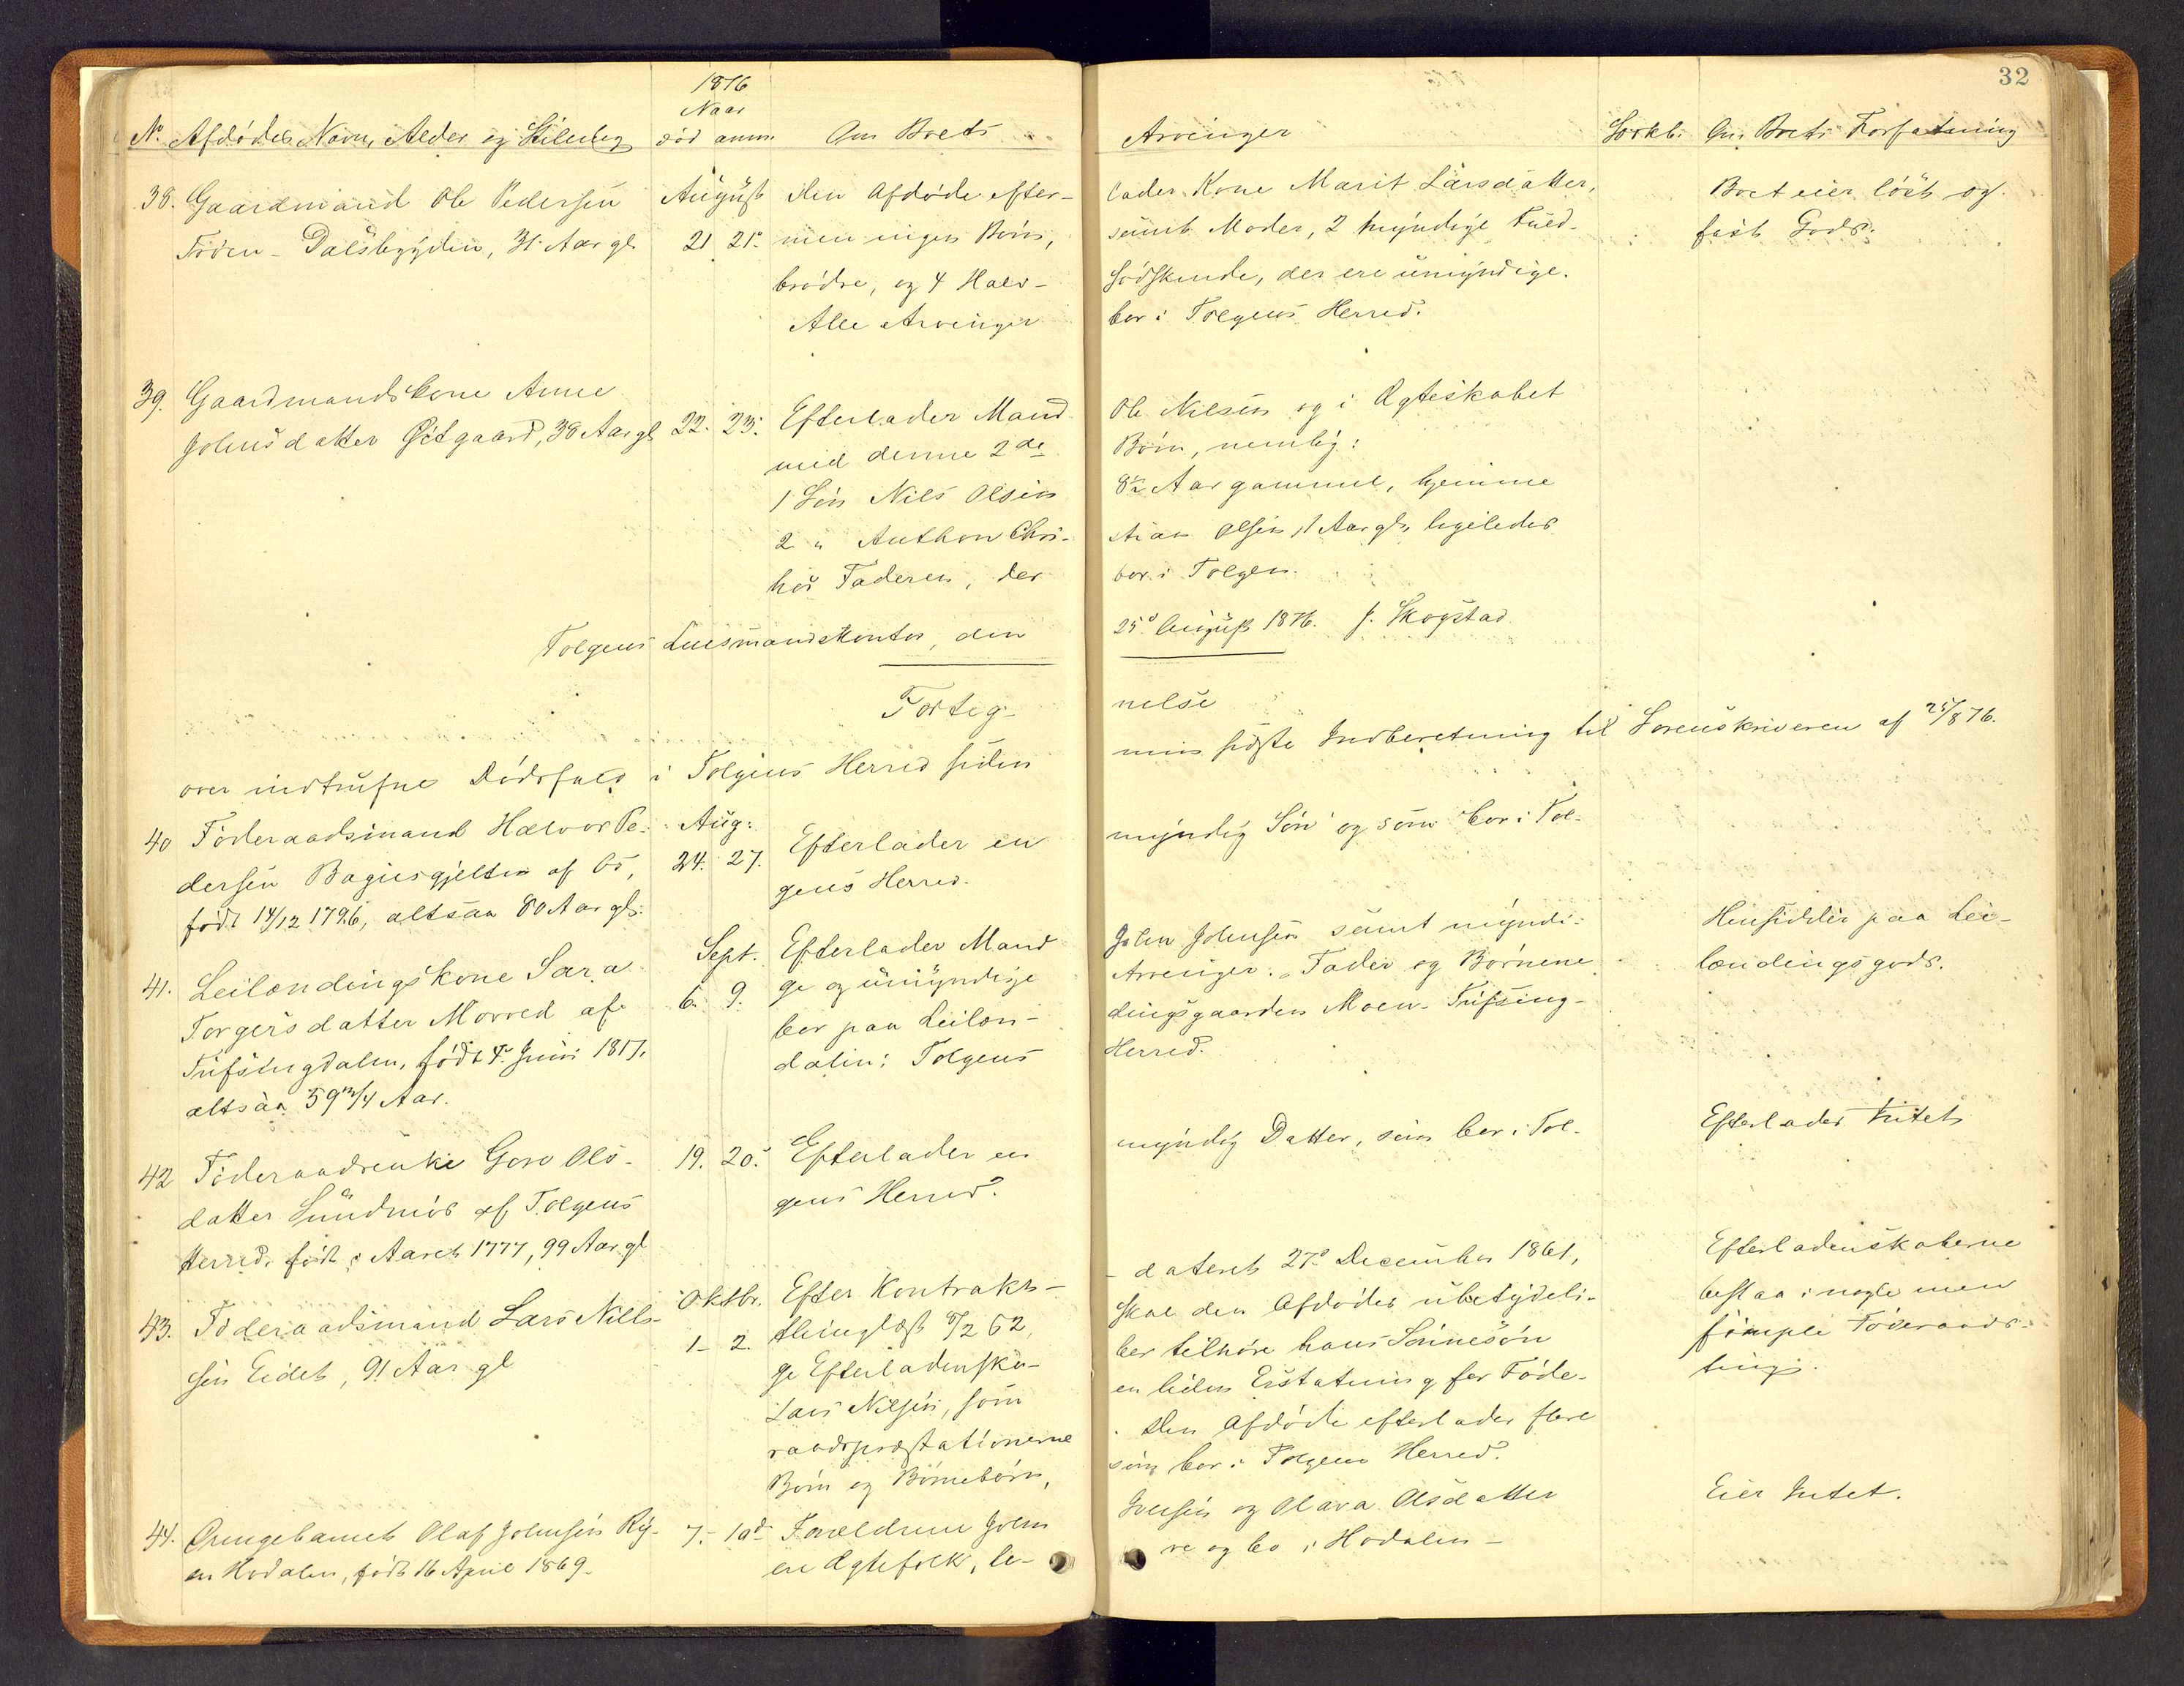 32
1876
Naar
No. Afdødes Navn, Alder og Stilling død anm. Om Boets Arvinger Sorkb. Om Boets Forfatning
38. Gaardmand Ole Pedersen August den Afdøde efter- lader Kone Marit Larsdatter, Boet eier løst og
Foden - Dalsbygden, 31 Aar gl. 21 21. men ingen Børn, samt Moder, 2 myndige Fuld- fast Gods.
brødre, og 4 Halv- sødskende, der ere umyndige.
Alle Arvinger bor i Tolgens Herred.
39. Gaardmandskone Anne
Johnsdatter Østgaard, 38 Aar gl. 22. 23. Efterlader Mand Ole Nilsen og i Ægteskabet
med denne 2de Børn, nemlig:
1 Søn Nils Olsen 8½ Aar gammel, hjemme
2 " Anthon Chri- stian Olsen, 1 Aar gl., ligeledes
hos Faderen, der bor i Tolgen.
Tolgens Lensmandskontor, den 25d August 1876. J. Skogstad
Forteg- nelse
over indtrufne Dødsfald i Tolgens Herred siden min sidste Indberetning til Sorenskriveren af 25/8 76.
40 Føderaadsmand Halvor Pe- Aug: Efterlader en myndig Søn og som bor i Tol-
dersen Bagiesgjelten af Os, 24. 27. gens Herred.
født 14/12 1796, altsaa 80 Aar gl.
41. Leilændingskone Sara Sept. Efterlader Mand John Johnsen samt myndi- Huusidder paa Lei-
Torgersdatter Morred af 6. 9. ge og umyndige Arvinger. Fader og Børnene lændingsgods.
Tufsingdalen, født 4 Juni 1817, bor paa Leilæn- dingsgaarden Moen - Tufsing-
altsaa 59 1/4 Aar. dalen i Tolgens Herred.
42 Føderaadsenke Goro Ols- 19. 20. Efterlader en myndig Datter, som bor i Tol- Efterlader Intet
datter Sundmor af Tolgens gens Herred.
Herred, født i Aaret 1777, 99 Aar gl
43. Føderaadsmand Lars Nils- Oktbr. Efter Kontrakt - - dateret 27d December 1861, Efterladenskaberne
sen Eidet, 91 Aar gl 1 - 2. thinglæst /2 62, skal den Afdødes ubetydeli- bestaa i nogle men
ge Efterladenska- ber tilhøre hans Sønnesøn simple Føderaads-
Lars Nilsen, som en liden Erstatning for Føde- ting.
raadspræstationerne. Den Afdøde efterlader flere
Børn og Børnebørn, som bor i Tolgens Herred.
44. Drengebarnet Olaf Johnsen Ry- 7. - 10d Forældrene John Iversen og Olava Olsdatter Eier Intet.
en Hodalen, født 16 April 1869. ere Ægtefolk, le- ve og bo i Hodalen -